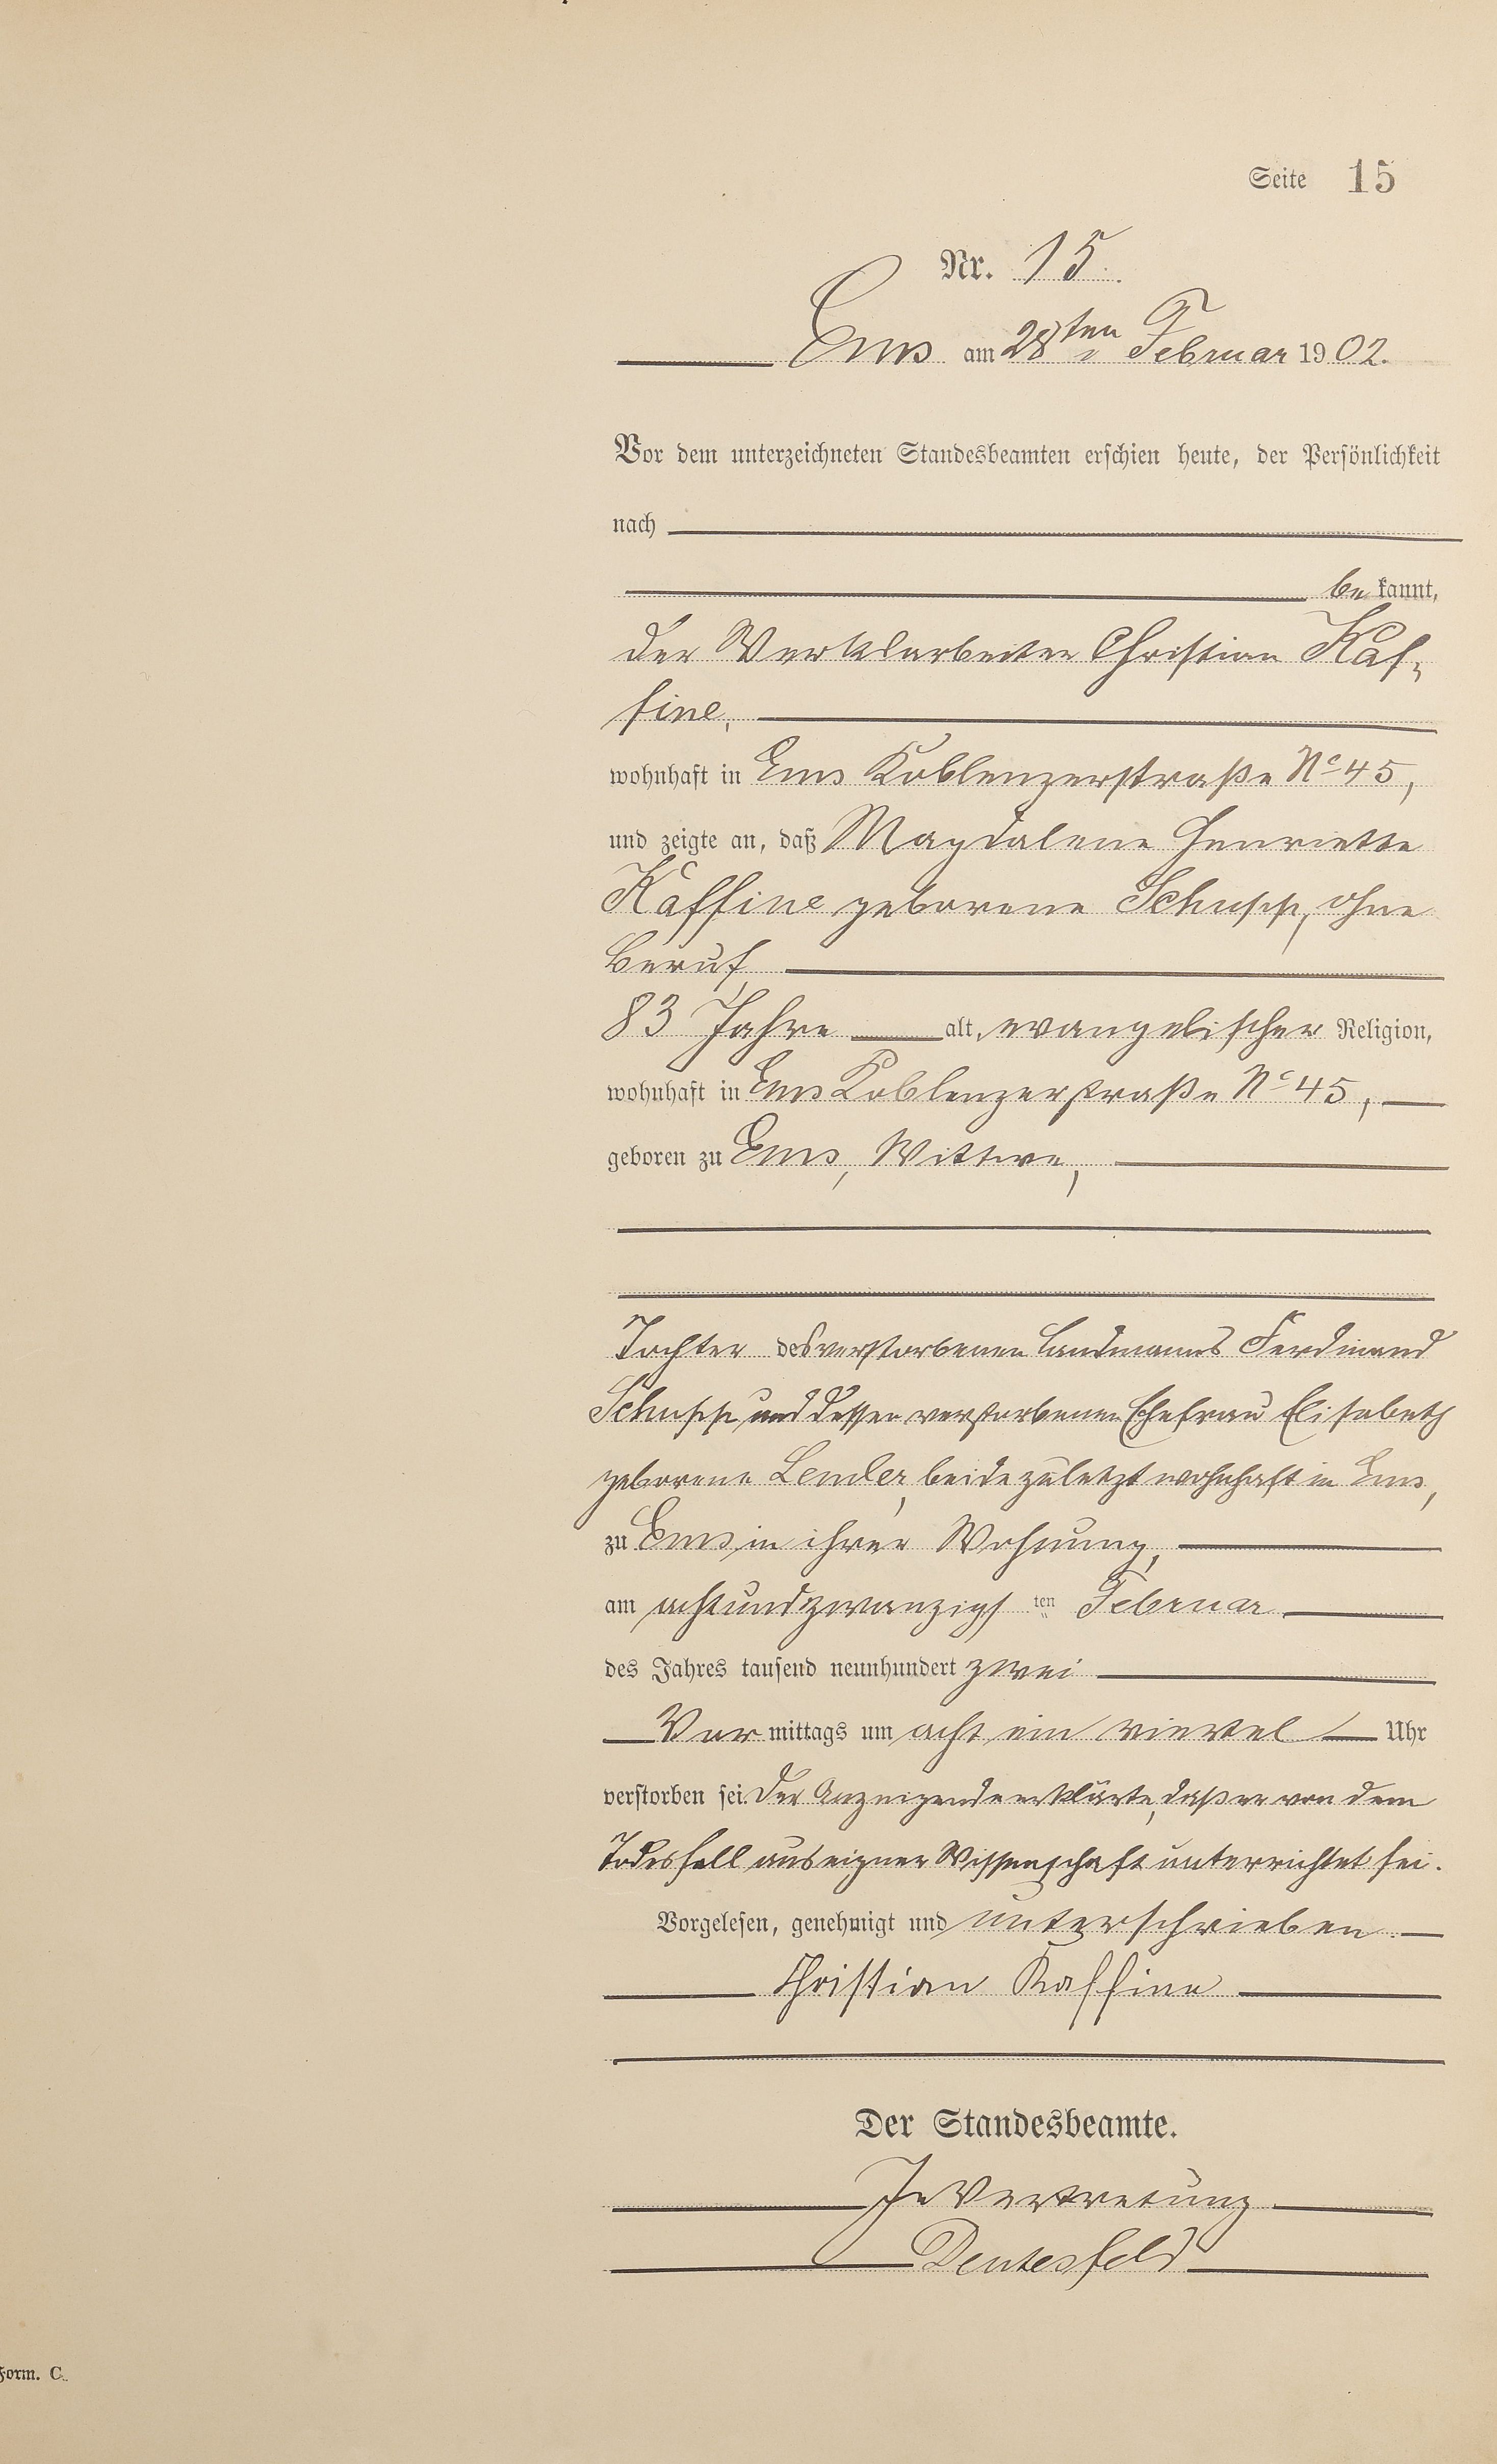 Seite 15
Nr. 15.
Ems am 28ten Februar 1902.
Vor dem unterzeichneten Standesbeamten erschien heute, der Persönlichkeit
nach
be kannt,
der Werksarbeiter Christian Kaf-
fine,
wohnhaft in Ems Koblenzerstraße No 45,
und zeigte an, daß Magdalene Henriette
Kaffine geborene Schupp, ohne
Beruf,
83 Jahre alt, evangelischer Religion,
wohnhaft in Ems Koblenzerstraße No 45,
geboren zu Ems, Wittwe,
Tochter des verstorbenen Landmanns Ferdinand
Schupp und dessen verstorbenen Ehefrau Elisabeth
geborene Lemler, beide zuletzt wohnhaft in Ems,
zu Ems in ihrer Wohnung,
am achtundzwanzigs ten Februar
des Jahres tausend neunhundert zwei
Vor mittags um acht ein viertel Uhr
verstorben sei. Der Anzeigende erklärte, daß er von dem
Todesfall aus eigner Wissenschaft unterrichtet sei.
Vorgelesen, genehmigt und unterschrieben
Christian Kaffine
Der Standesbeamte.
In Vertretung
Deutesfeld
Form. C.